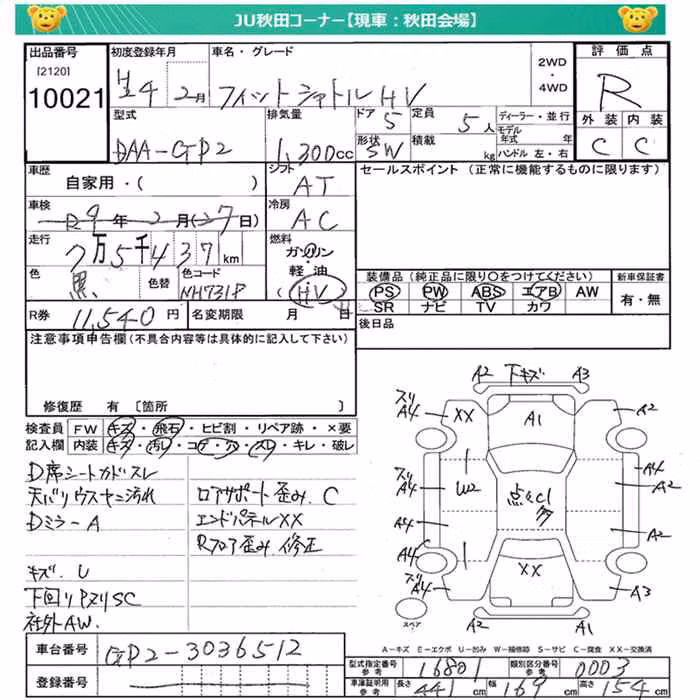 JU秋田コーナー【現車：秋田会場】
出品番号 初度登録年月 車名・グレード 2WD・4WD 評価点
[2120]
10021 H24 2月 フィットシャトル HV R
型式 排気量 ドア 5 定員 5人 ディーラー・並行 外装 内装
モデル年式 年
DAA-GP2 1,300cc 形状 SW 積載 kg ハンドル 左・右 C C
車歴 シフト セールスポイント（正常に機能するものに限ります）
自家用・（ ） AT
車検 冷房
R9年2月(27日) AC
走行 燃料
7万5千437km ガソリン・軽油
色 黒 色替 色コード NH731P （HV）
装備品（純正品に限り○をつけてください） 新車保証書
PS PW ABS エアB AW 有・無
SR ナビ TV カワ
R券 11,540円 名変期限 月 日 後日品
注意事項申告欄（不具合内容等は具体的に記入して下さい）
修復歴 有〔箇所 〕
検査員記入欄 FW キズ・飛石・ヒビ割・リペア跡・×要
内装 キズ・汚レ・コゲ・穴・スレ・キレ・破レ
D席シートカドスレ
天バリウスヤニ汚れ ロアサポート歪み、C
Dミラー A エンドパネルXX
Rフロア歪み修正
キズ、U
下回りPヌリSC
社外AW、
A2 下キズ A3
ズリ A4 XX A1 A2
ズリ A4 U2 点々C1多 A4 A2
A4 A2
A4 C
ズリ A4 XX A3
スペア A2 A1
A-キズ E-エクボ U-凹み W-補修跡 S-サビ C-腐食 XX-交換済
車台番号 GP2-3036512
登録番号
型式指定番号 参考 16801 類別区分番号 参考 0003
車庫証明用 参考 長さ 441cm 幅 169cm 高さ 154cm